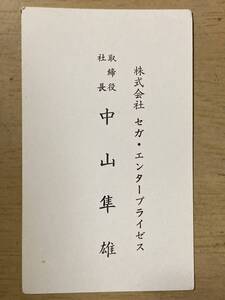 株式会社 セガ・エンタープライゼス
取締役
社長
中山隼雄